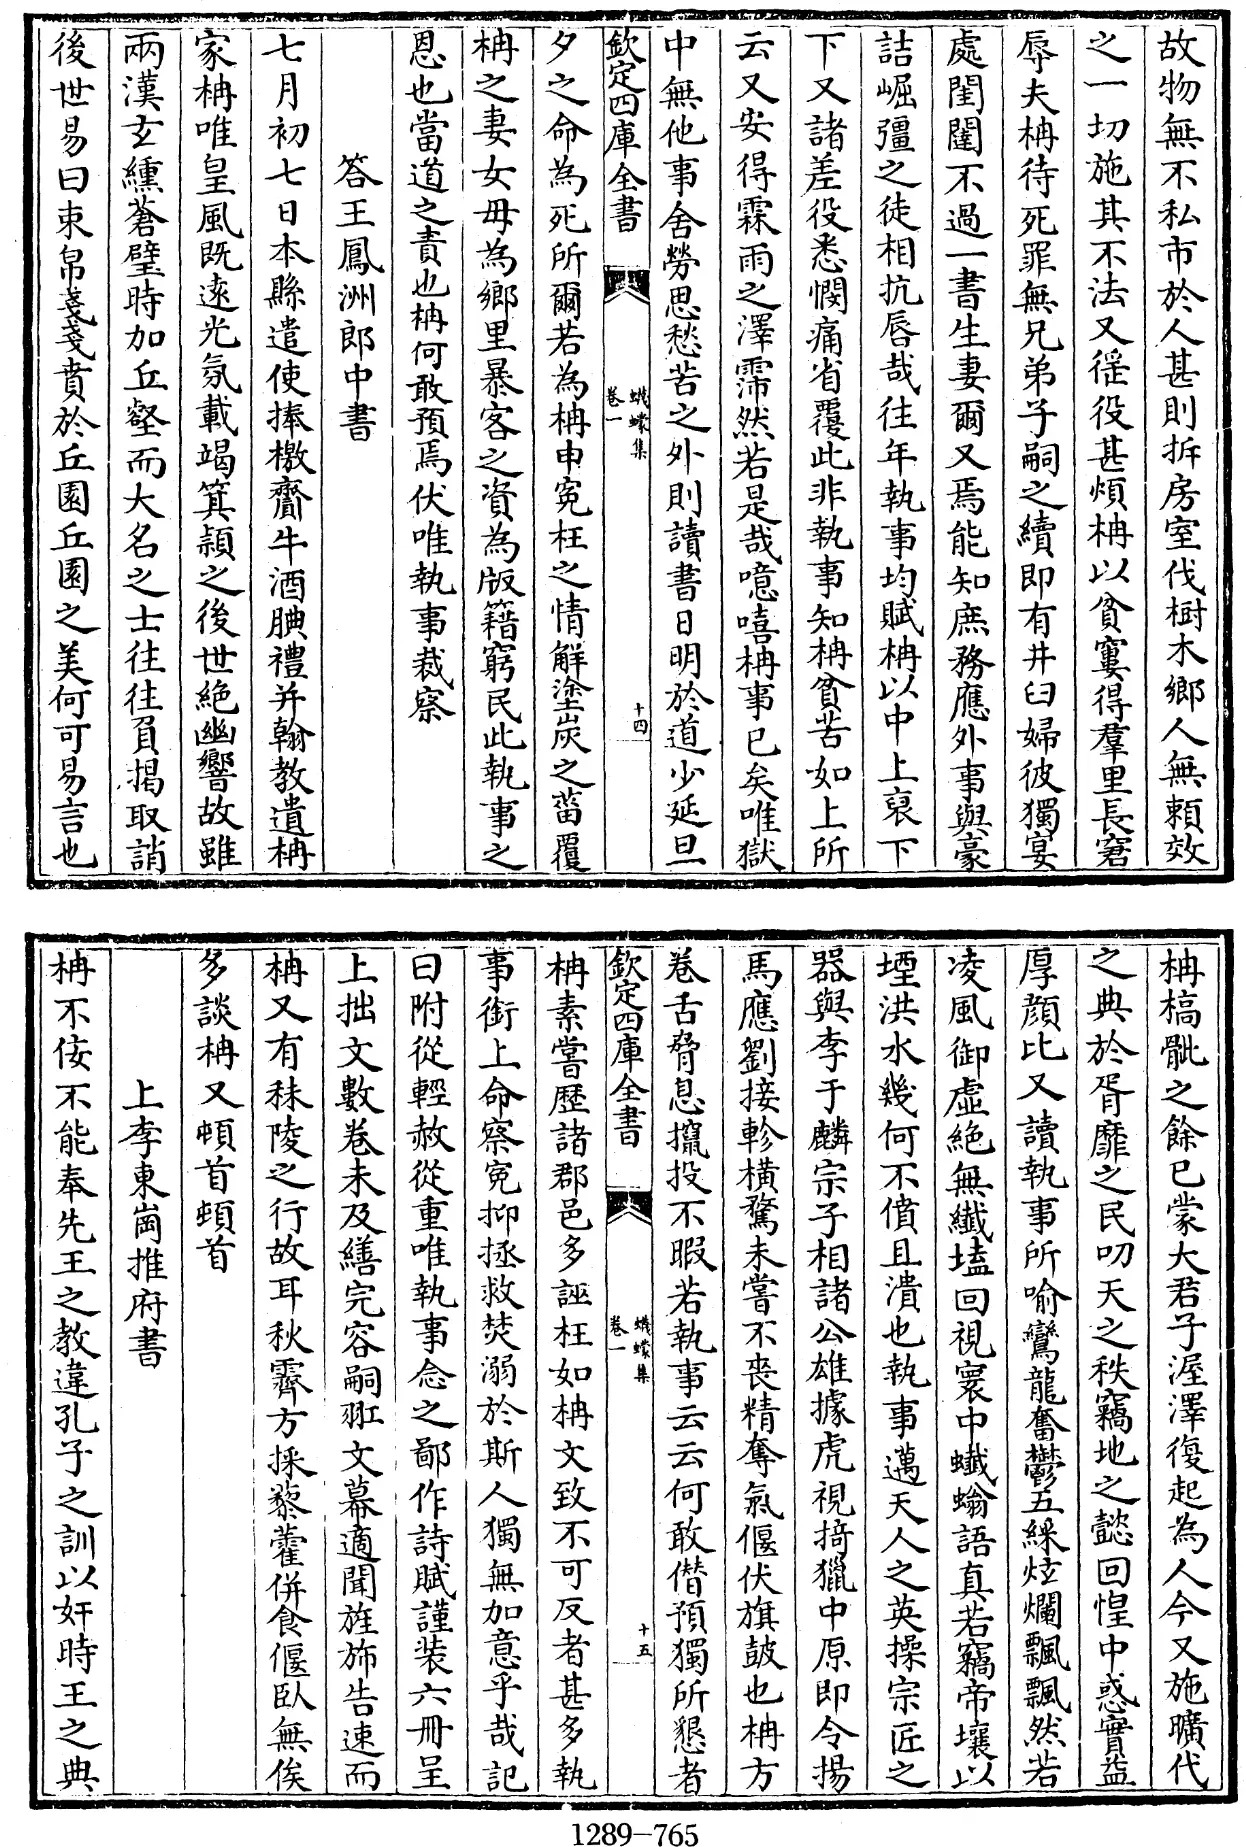 故物無不私市於人甚則拆房室伐樹木鄉人無頼效
之一切施其不法又徭役甚煩柟以貧窶得羣里長窘
辱夫柟待死罪無兄弟子嗣之續即有井臼婦彼獨宴
處閨闥不過一書生妻爾又焉能知庶務應外事與豪
詰崛彊之徒相抗唇哉往年執事均賦柟以中上裒下
下又諸差役悉憫痛省覆此非執事知柟貧苦如上所
云又安得霖雨之澤霈然若是哉噫嘻柟事已矣唯獄
中無他事舍勞思愁苦之外則讀書日明於道少延旦
欽定四庫全書
蠛蠓集
卷一
十四
夕之命為死所爾若為柟申寃枉之情解塗炭之菑覆
柟之妻女毋為鄉里暴客之資為版籍窮民此執事之
恩也當道之責也柟何敢預焉伏唯執事裁察
答王鳳洲郎中書
七月初七日本縣遣使捧檄齎牛酒腆禮并翰教遺柟
家柟唯皇風既逺光氛載竭箕頴之後世絶幽響故雖
兩漢玄纁蒼璧時加丘壑而大名之士往往負掲取誚
後世易曰束帛戔戔賁於丘園丘園之美何可易言也
柟槁骴之餘已蒙大君子渥澤復起為人今又施曠代
之典於胥靡之民叨天之秩竊地之懿回惶中惑實益
厚顔比又讀執事所喻鸞龍奮鬱五綵炫爛飄飄然若
凌風御虛絶無纖壒回視寰中蠛蠓語真若竊帝壤以
堙洪水幾何不僨且潰也執事邁天人之英操宗匠之
器與李于麟宗子相諸公雄據虎視掎獵中原即令揚
馬應劉接軫横騖未嘗不喪精奪氣偃伏旗鼓也柟方
卷舌脅息攛投不暇若執事云云何敢僭預獨所懇者
欽定四庫全書
蠛蠓集
卷一
十五
柟素嘗歴諸郡邑多誣枉如柟文致不可反者甚多執
事銜上命察寃抑拯救焚溺於斯人獨無加意乎哉記
曰附從輕赦從重唯執事念之鄙作詩賦謹装六冊呈
上拙文數卷未及繕完容嗣䢖文幕適聞旌斾告速而
柟又有秣陵之行故耳秋霽方採藜藿併食偃臥無俟
多談柟又頓首頓首
上李東崗推府書
柟不佞不能奉先王之教違孔子之訓以奸時王之典
1289-765